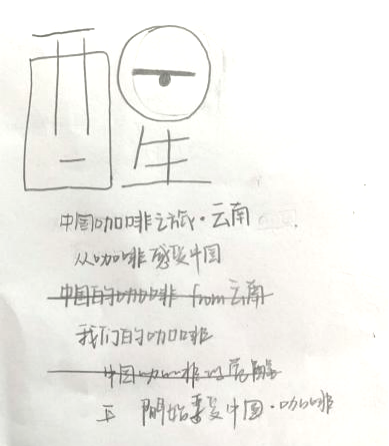 醒
中国咖啡之旅·云南
从咖啡感受中国
中国的咖啡 from云南
我们的咖啡
中国咖啡
正 开始享受中国·咖啡